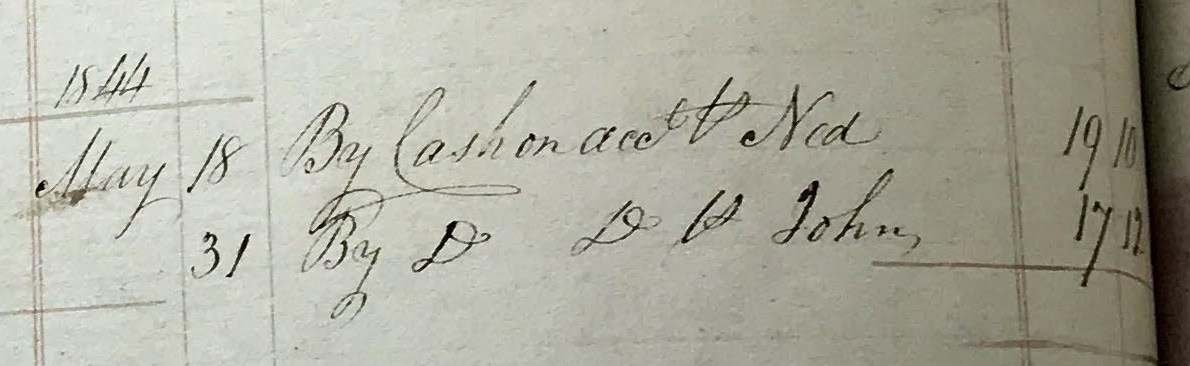 1844
May 18 By Cash on acct ⅌ Ned 19 10
31 By Do Do ⅌ John 17 12